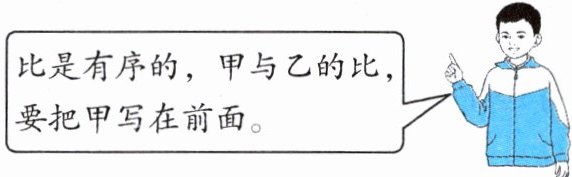 比是有序的，甲与乙的比，
要把甲写在前面。